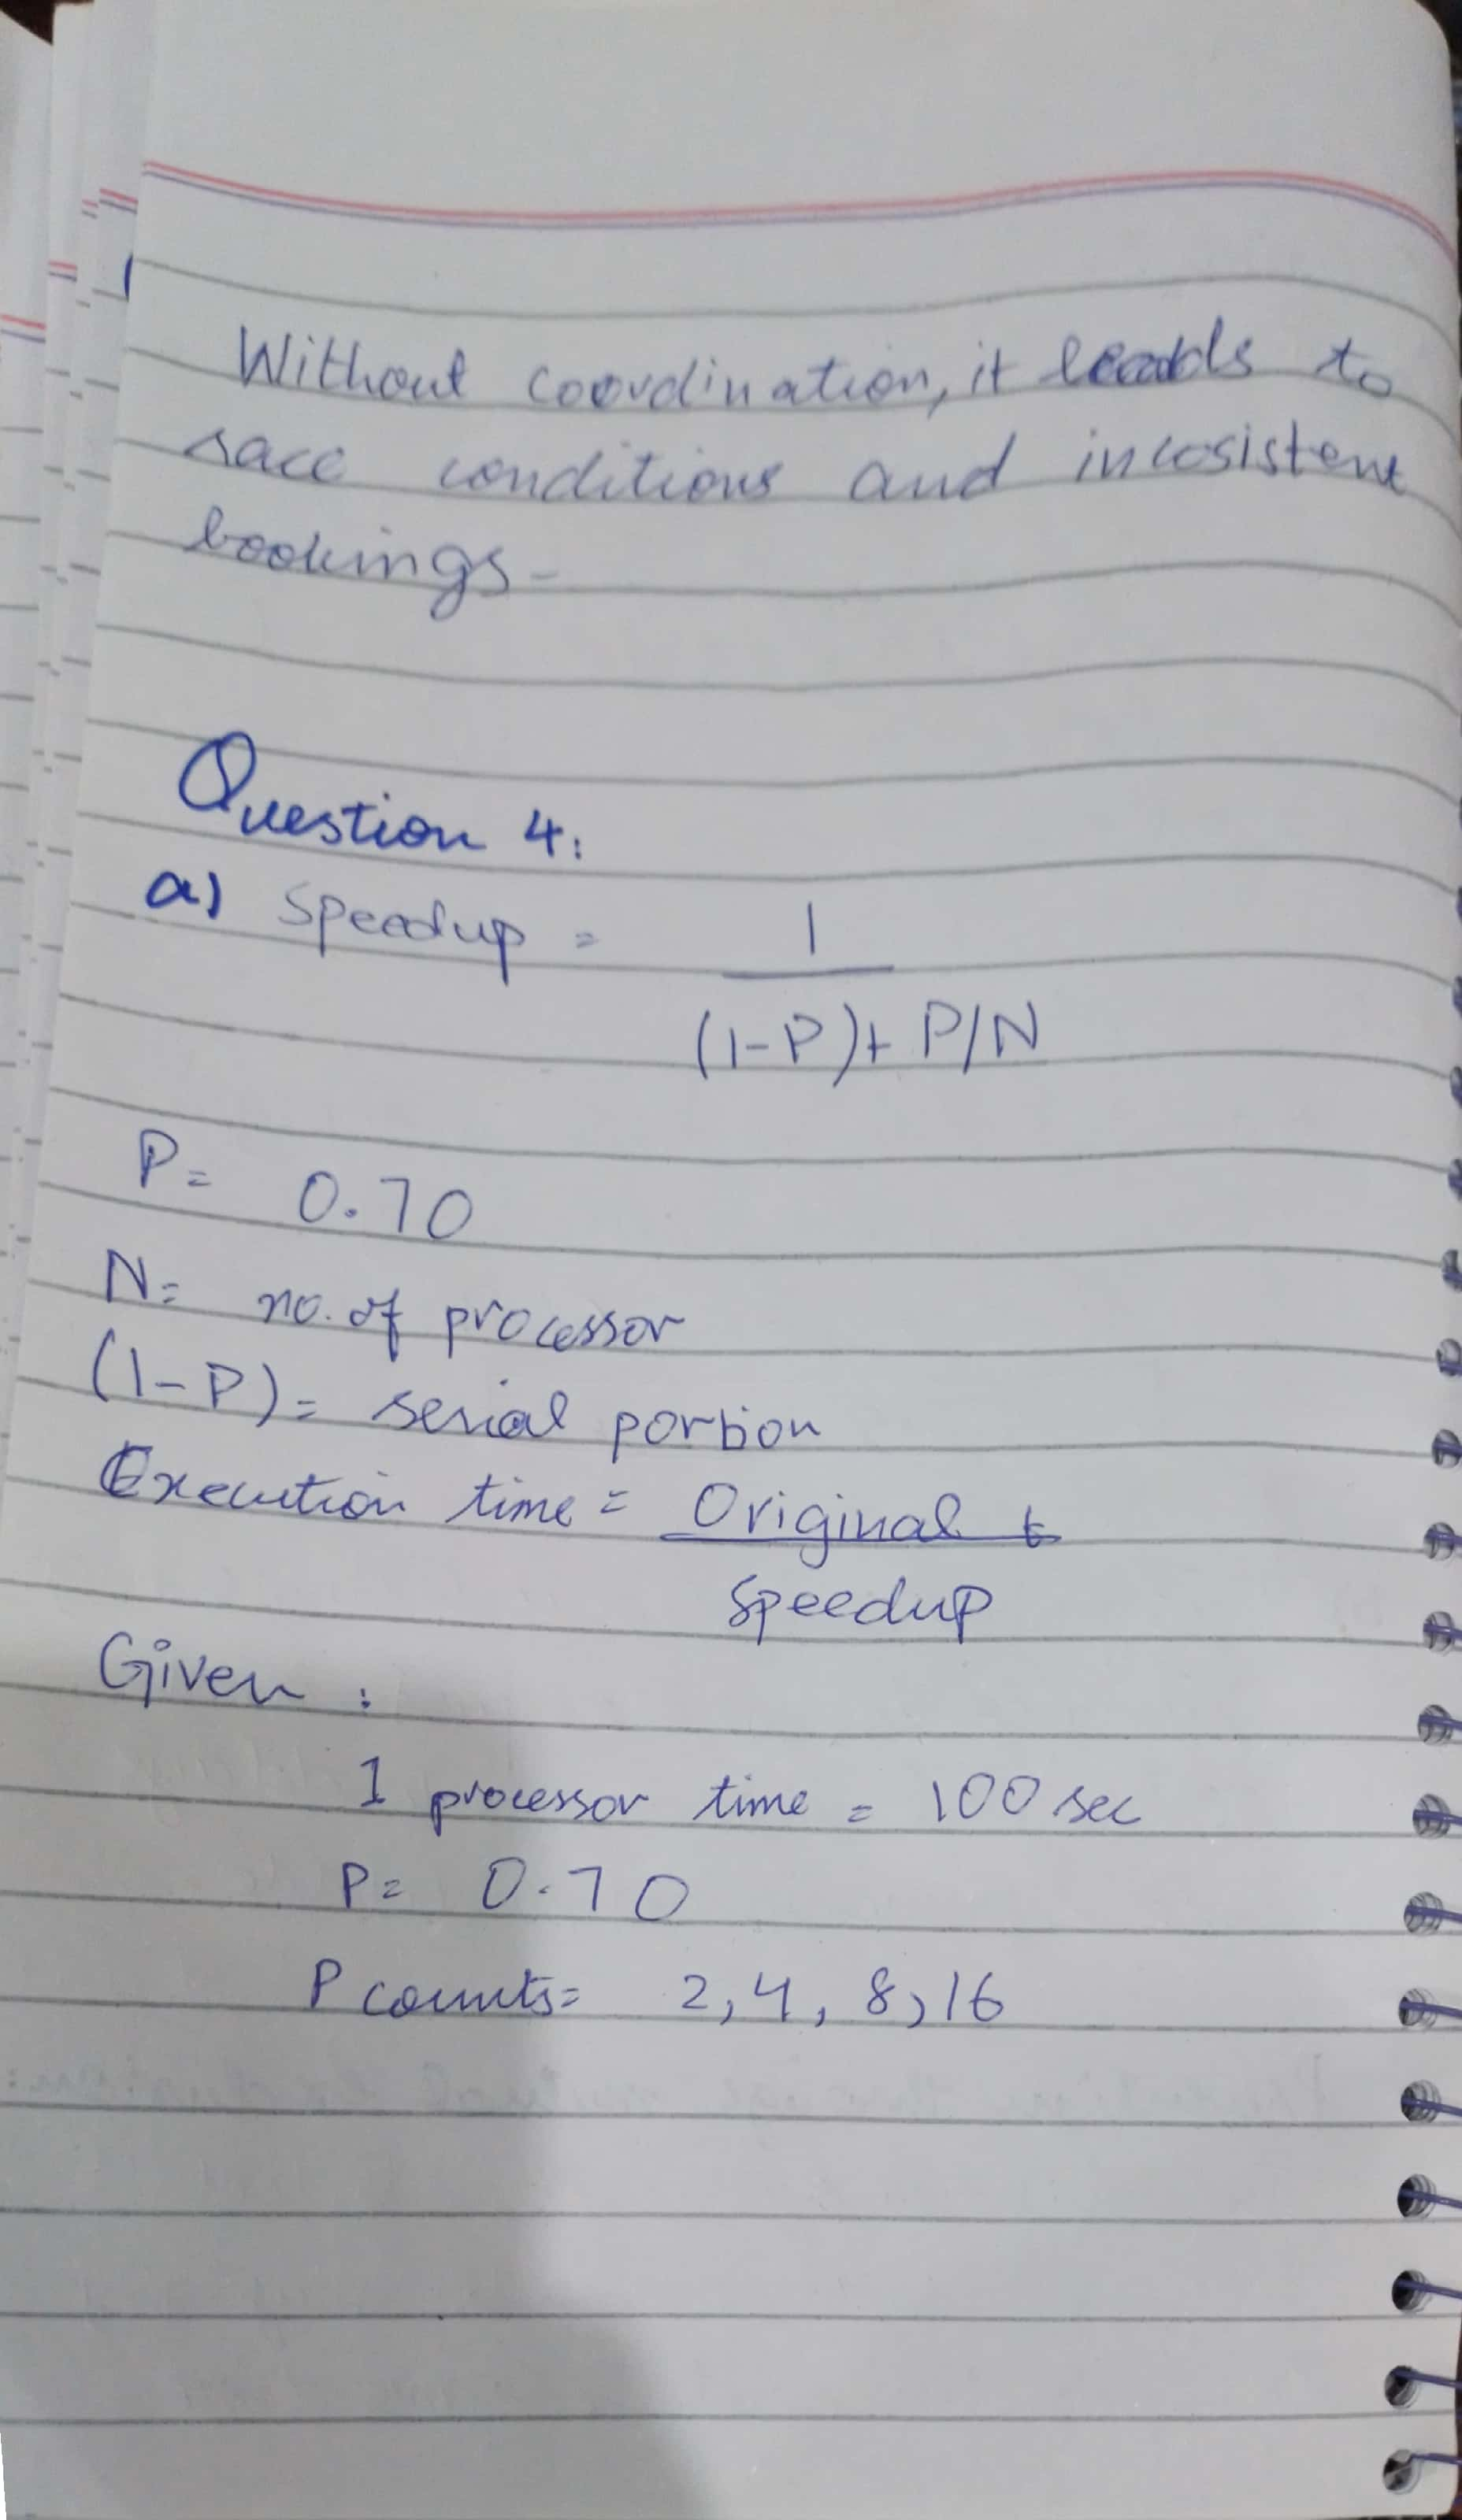 Without coordination, it leads to
race conditions and incosistent
bookings-
Question 4:
a) Speedup = 1
(1-P)+ P/N
P= 0.70
N= no. of processor
(1-P)= serial portion
Execution time = Original t
Speedup
Given :
1 processor time = 100 sec
P= 0.70
P counts= 2,4, 8,16